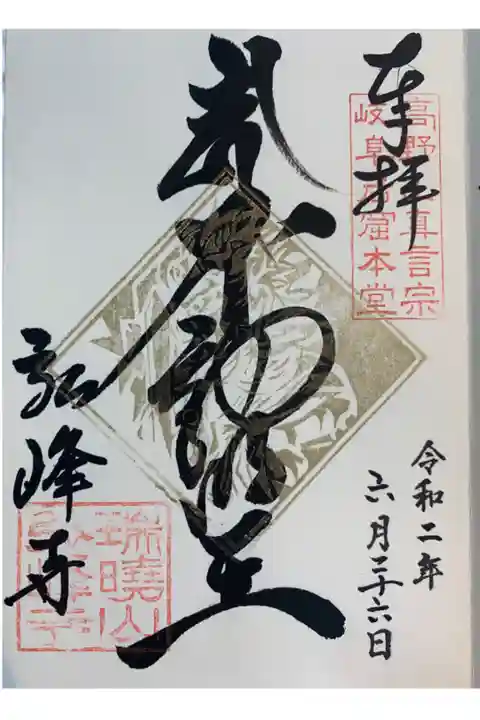 奉拝
高野山真言宗
岐阜石窟本堂
令和二年
六月二十六日
弘峰寺
瑞暁山
弘峰寺